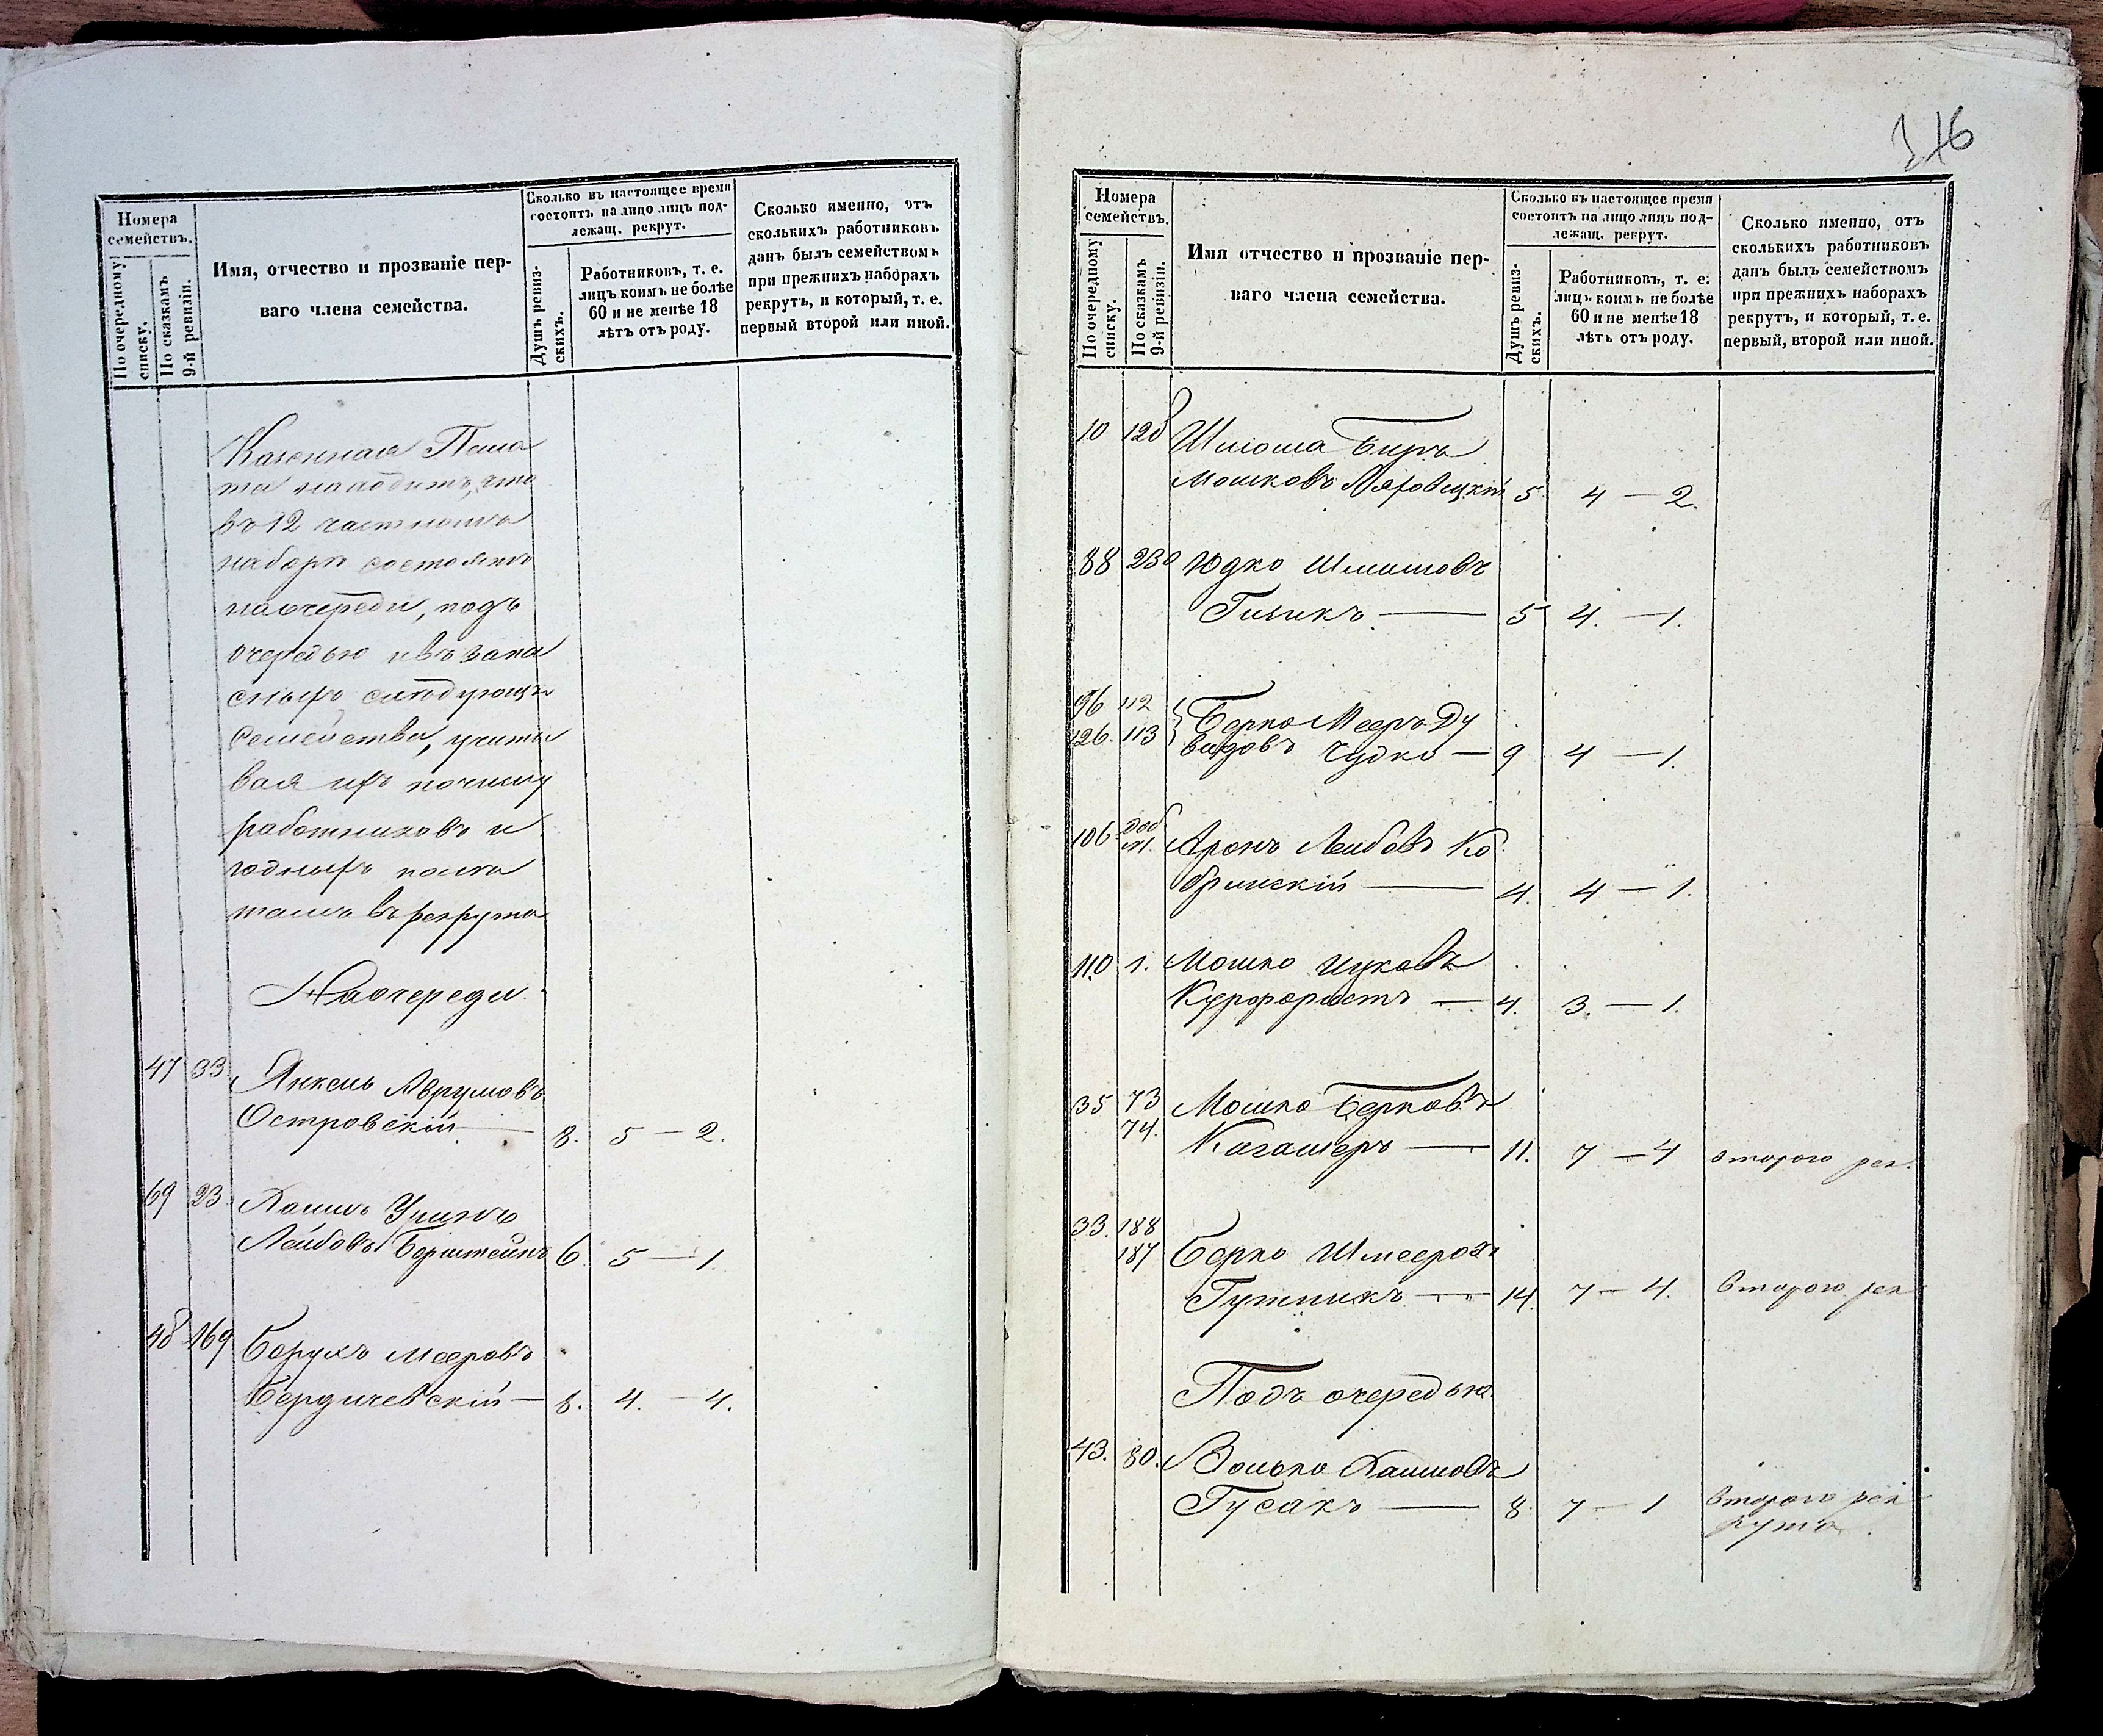 Номера
семействъ.
По очередному
списку.
По сказкамъ
9-й ревизіи.
Имя, отчество и прозваніе пер-
ваго члена семейства.
Сколько въ настоящее время
состоитъ на лицо лицъ под-
лежащ. рекрут.
Душъ ревиз-
скихъ.
Работниковъ, т. е.
лицъ коимъ не болѣе
60 и не менѣе 18
лѣтъ отъ роду.
Сколько именно, отъ
сколькихъ работниковъ
данъ былъ семействомъ
при прежнихъ наборахъ
рекрутъ, и который, т. е.
первый второй или иной.
Казенная Пала
та находитъ, что
въ 12 частномъ
наборѣ состоятъ
наочереди, подъ
очередью и въ запа
сныхъ слѣдующія
Семейства, учиты
вая ихъ по числу
работниковъ и
годныхъ по лѣ
тамъ въ рекрута
Наочереди
47 33 Янкель Аврумовъ
Островскій — 8. 5 — 2.
69 23 Хаимъ
Лейбовъ Борштейнъ 6 5 — 1.
48 169 Борухъ Мееровъ
Бердичевскій — 8. 4. — 4.
316
Номера
семействъ.
По очередному
списку.
По сказкамъ
9-й ревизіи.
Имя отчество и прозваніе пер-
ваго члена семейства.
Сколько въ настоящее время
состоитъ на лицо лицъ под-
лежащ. рекрут.
Душъ ревиз-
скихъ.
Работниковъ, т. е.
лицъ коимъ не болѣе
60 и не менѣе 18
лѣтъ отъ роду.
Сколько именно, отъ
сколькихъ работниковъ
данъ былъ семействомъ
при прежнихъ наборахъ
рекрутъ, и который, т. е.
первый, второй или иной.
10 128 Шліома Беръ
Мошковъ 5 4 — 2.
88 230 Юдко Шліомовъ
— 5 4. — 1.
96 112 Берко Мееръ Ду
126. 113 видовъ Чудко — 9 4 — 1.
106 Аронъ Лейбовъ Ко
бринскій — 4. 4 — 1.
110 1. Мошко Ицковъ
— 4. 3. — 1.
35 73 Мошко Берковъ
74. — 11. 7 — 4 второго рек.
33. 188
187 Берко
— 14. 7 — 4. второго рек
Подъ очередью.
43. 80. Волько Хаимовъ
Гусакъ — 8. 7 — 1 второго рек
рута.